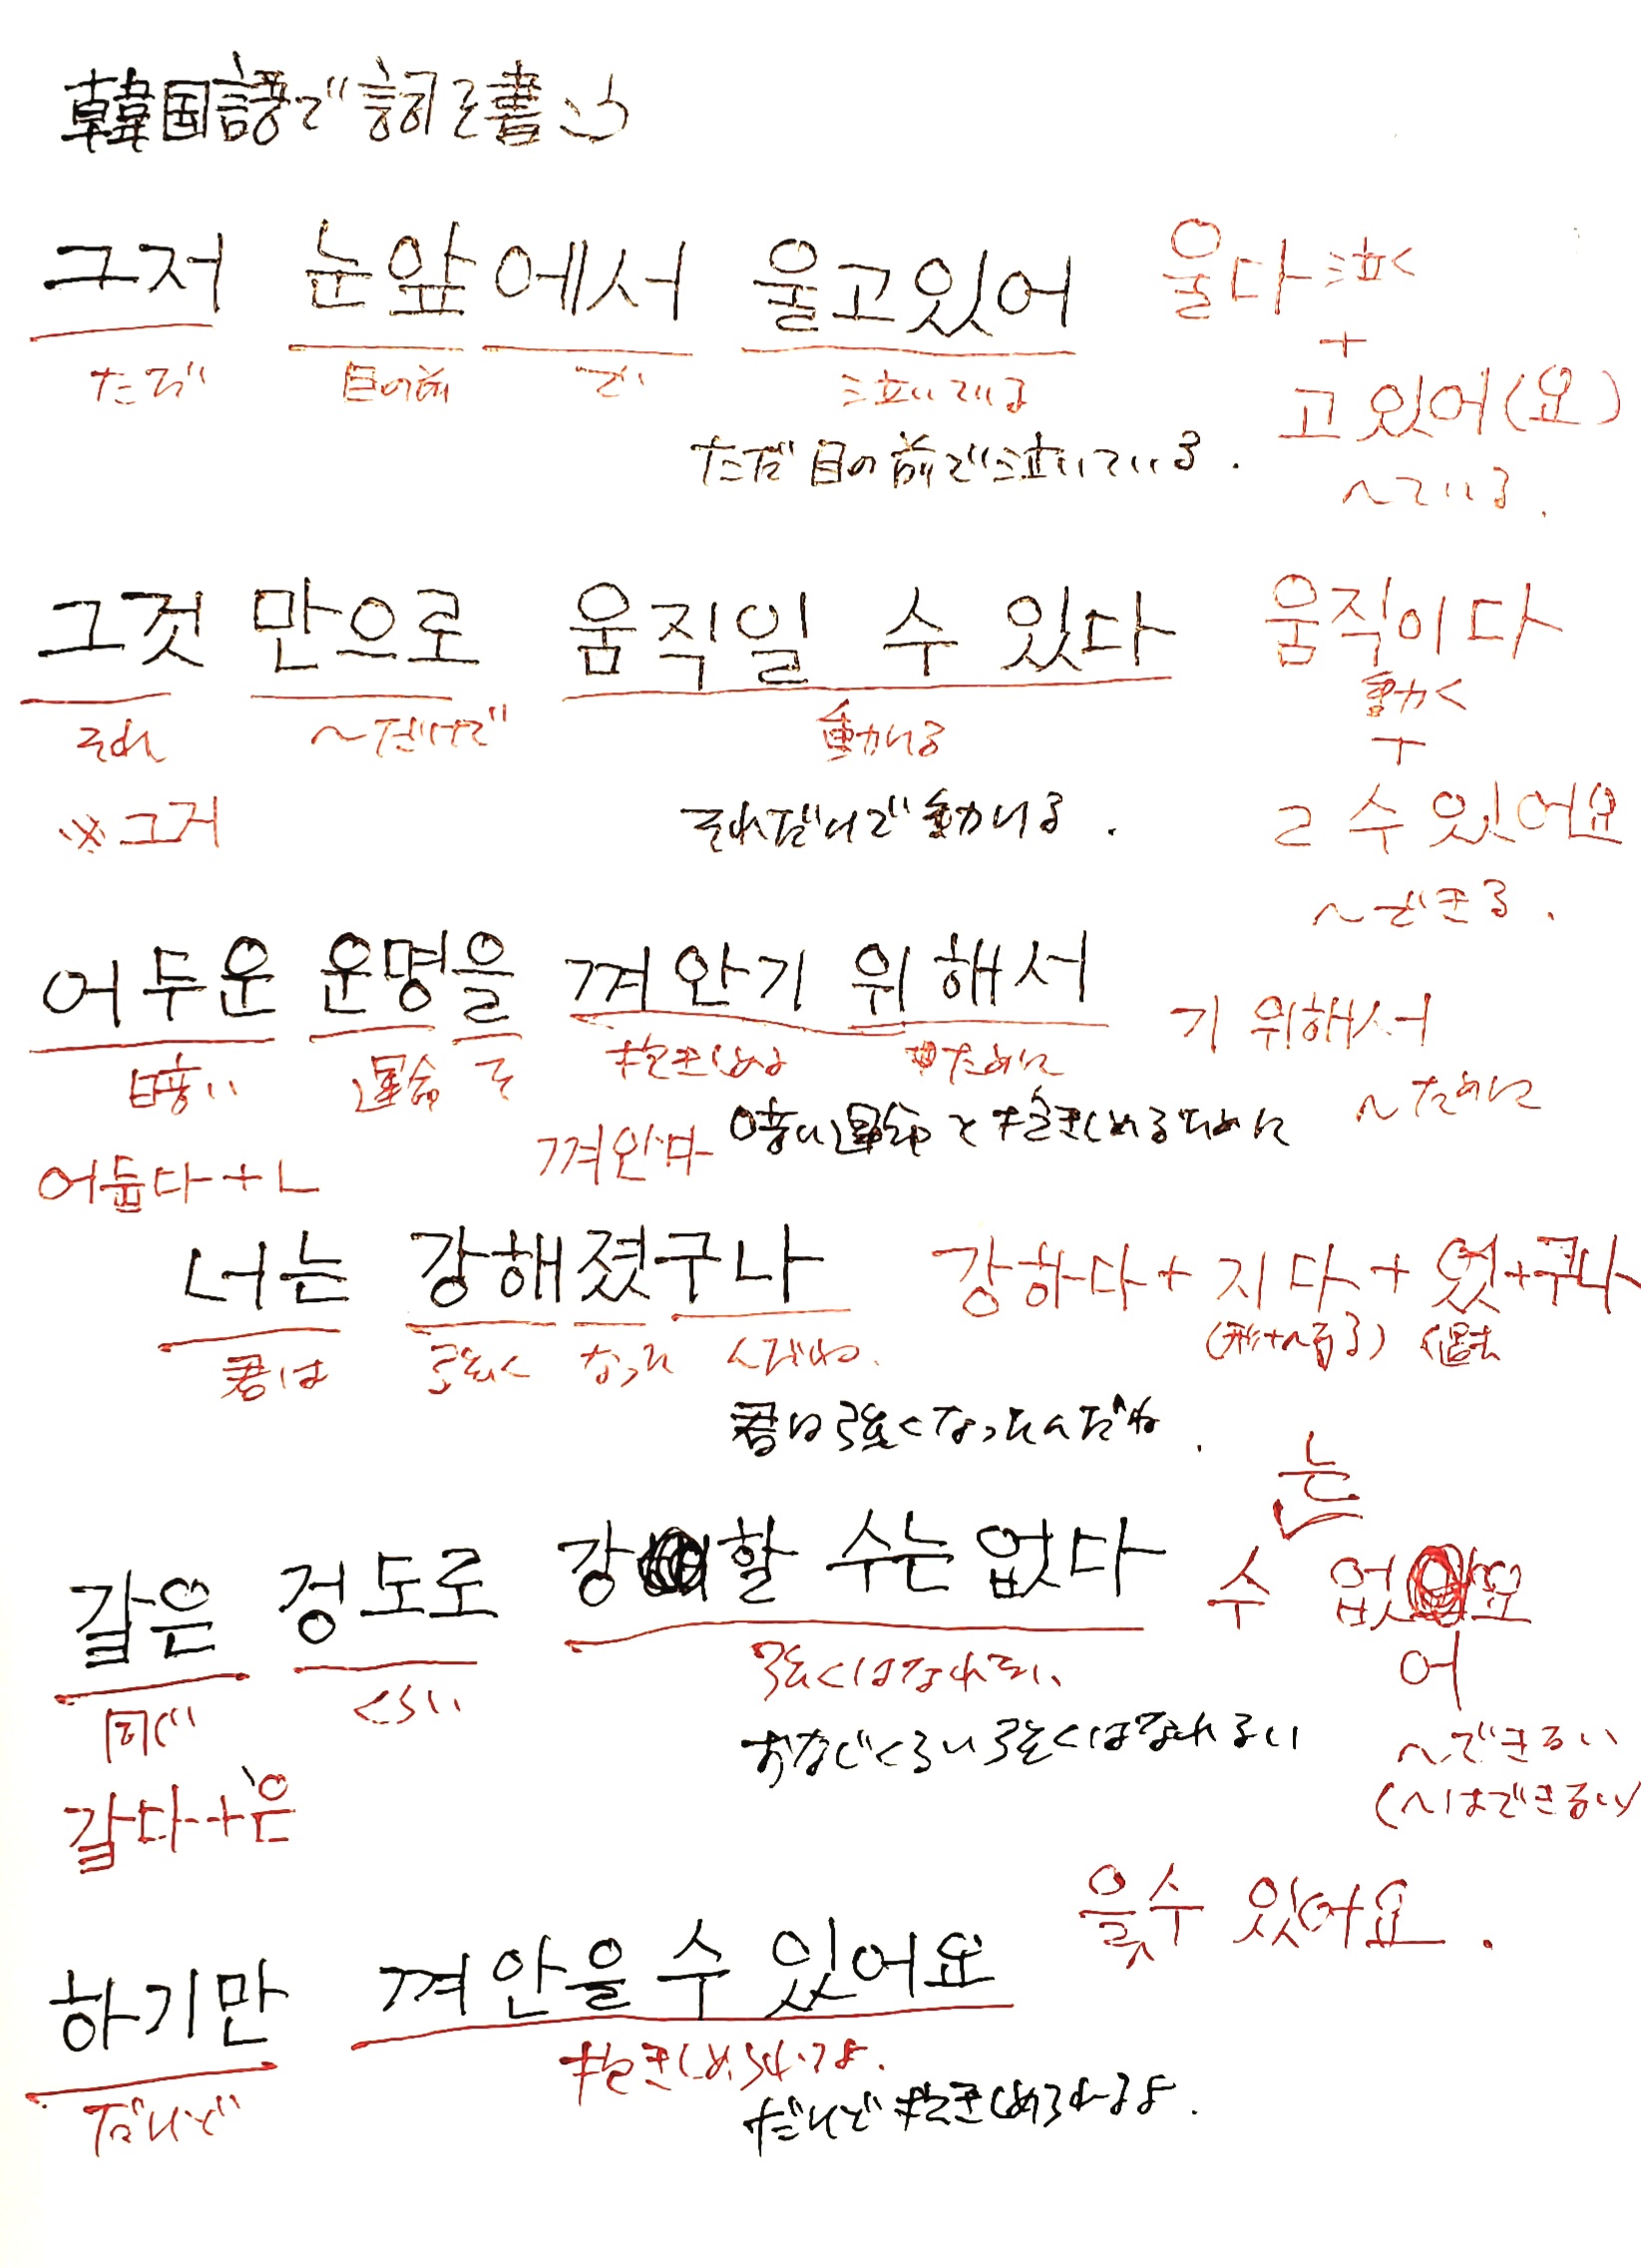 韓国語で詞を書こう
그저 눈앞에서 울고있어 울다 泣く
+
ただ 目の前 で 泣いている 고 있어(요)
ただ目の前で泣いている. 〜ている.
그것 만으로 움직일 수 있다 움직이다
動く
それ 〜だけで 動ける +
※그거 それだけで動ける. ㄹ 수 있어요
〜できる.
어두운 운명을 껴안기 위해서 기 위해서
暗い 運命 を 抱きしめる ために 〜ために
어둡다+ㄴ 껴안다 暗い運命を抱きしめるために
너는 강해졌구나 강하다+지다+었+구나
君は 強く なった んだね. 過去
君は強くなったんだね.
는
같은 정도로 강할 수는없다 수 없요
어
同じ くらい 強くはなれない
おなじくらい強くはなれない 〜できない
같다+은 (〜はできない)
을수 있어요.
하기만 껴안을 수 있어요
だけど 抱きしめられるよ.
だけど抱きしめられるよ.